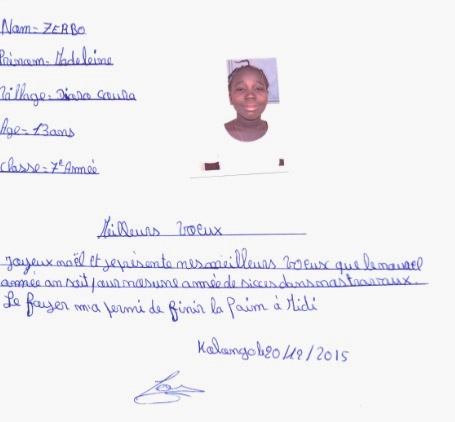 Nom= ZERBO
Prénom= Madeleine
Village= Diaro coura
Age= 13 ans
Classe= 7e Année
Meilleurs voeux
Joyeux noël et je présente mes meilleurs voeux que le nouvel
année an soit pour nous une année de succes dans mas travaux.
Le foyer m'a permi de finir la faim à Midi
Kolongo le 20/12/2015